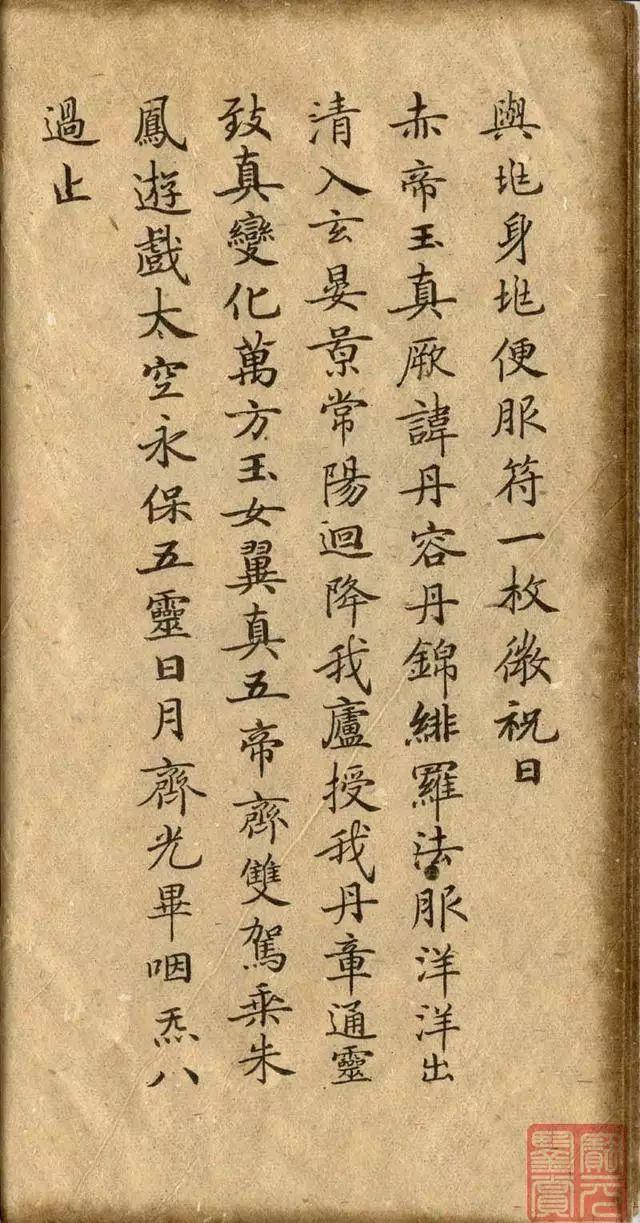 與𡉏身𡉏便服符一枚微祝曰
赤帝玉真厥諱丹容丹錦緋羅法服洋洋出
清入玄晏景常陽迴降我廬授我丹章通靈
致真變化萬方玉女翼真五帝齊雙駕乗朱
鳳遊戲太空永保五靈日月齊光畢咽炁八
過止